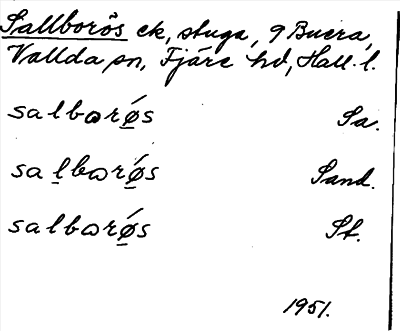 Sallborös ek, stuga, 9 Buera,
Vallda sn, Fjäre hd, Hall. l.
salbɷrǿ̲s Sa.
sal̲bɷrǿ̲s Sand.
salbɷrǿ̲s St.
1951.